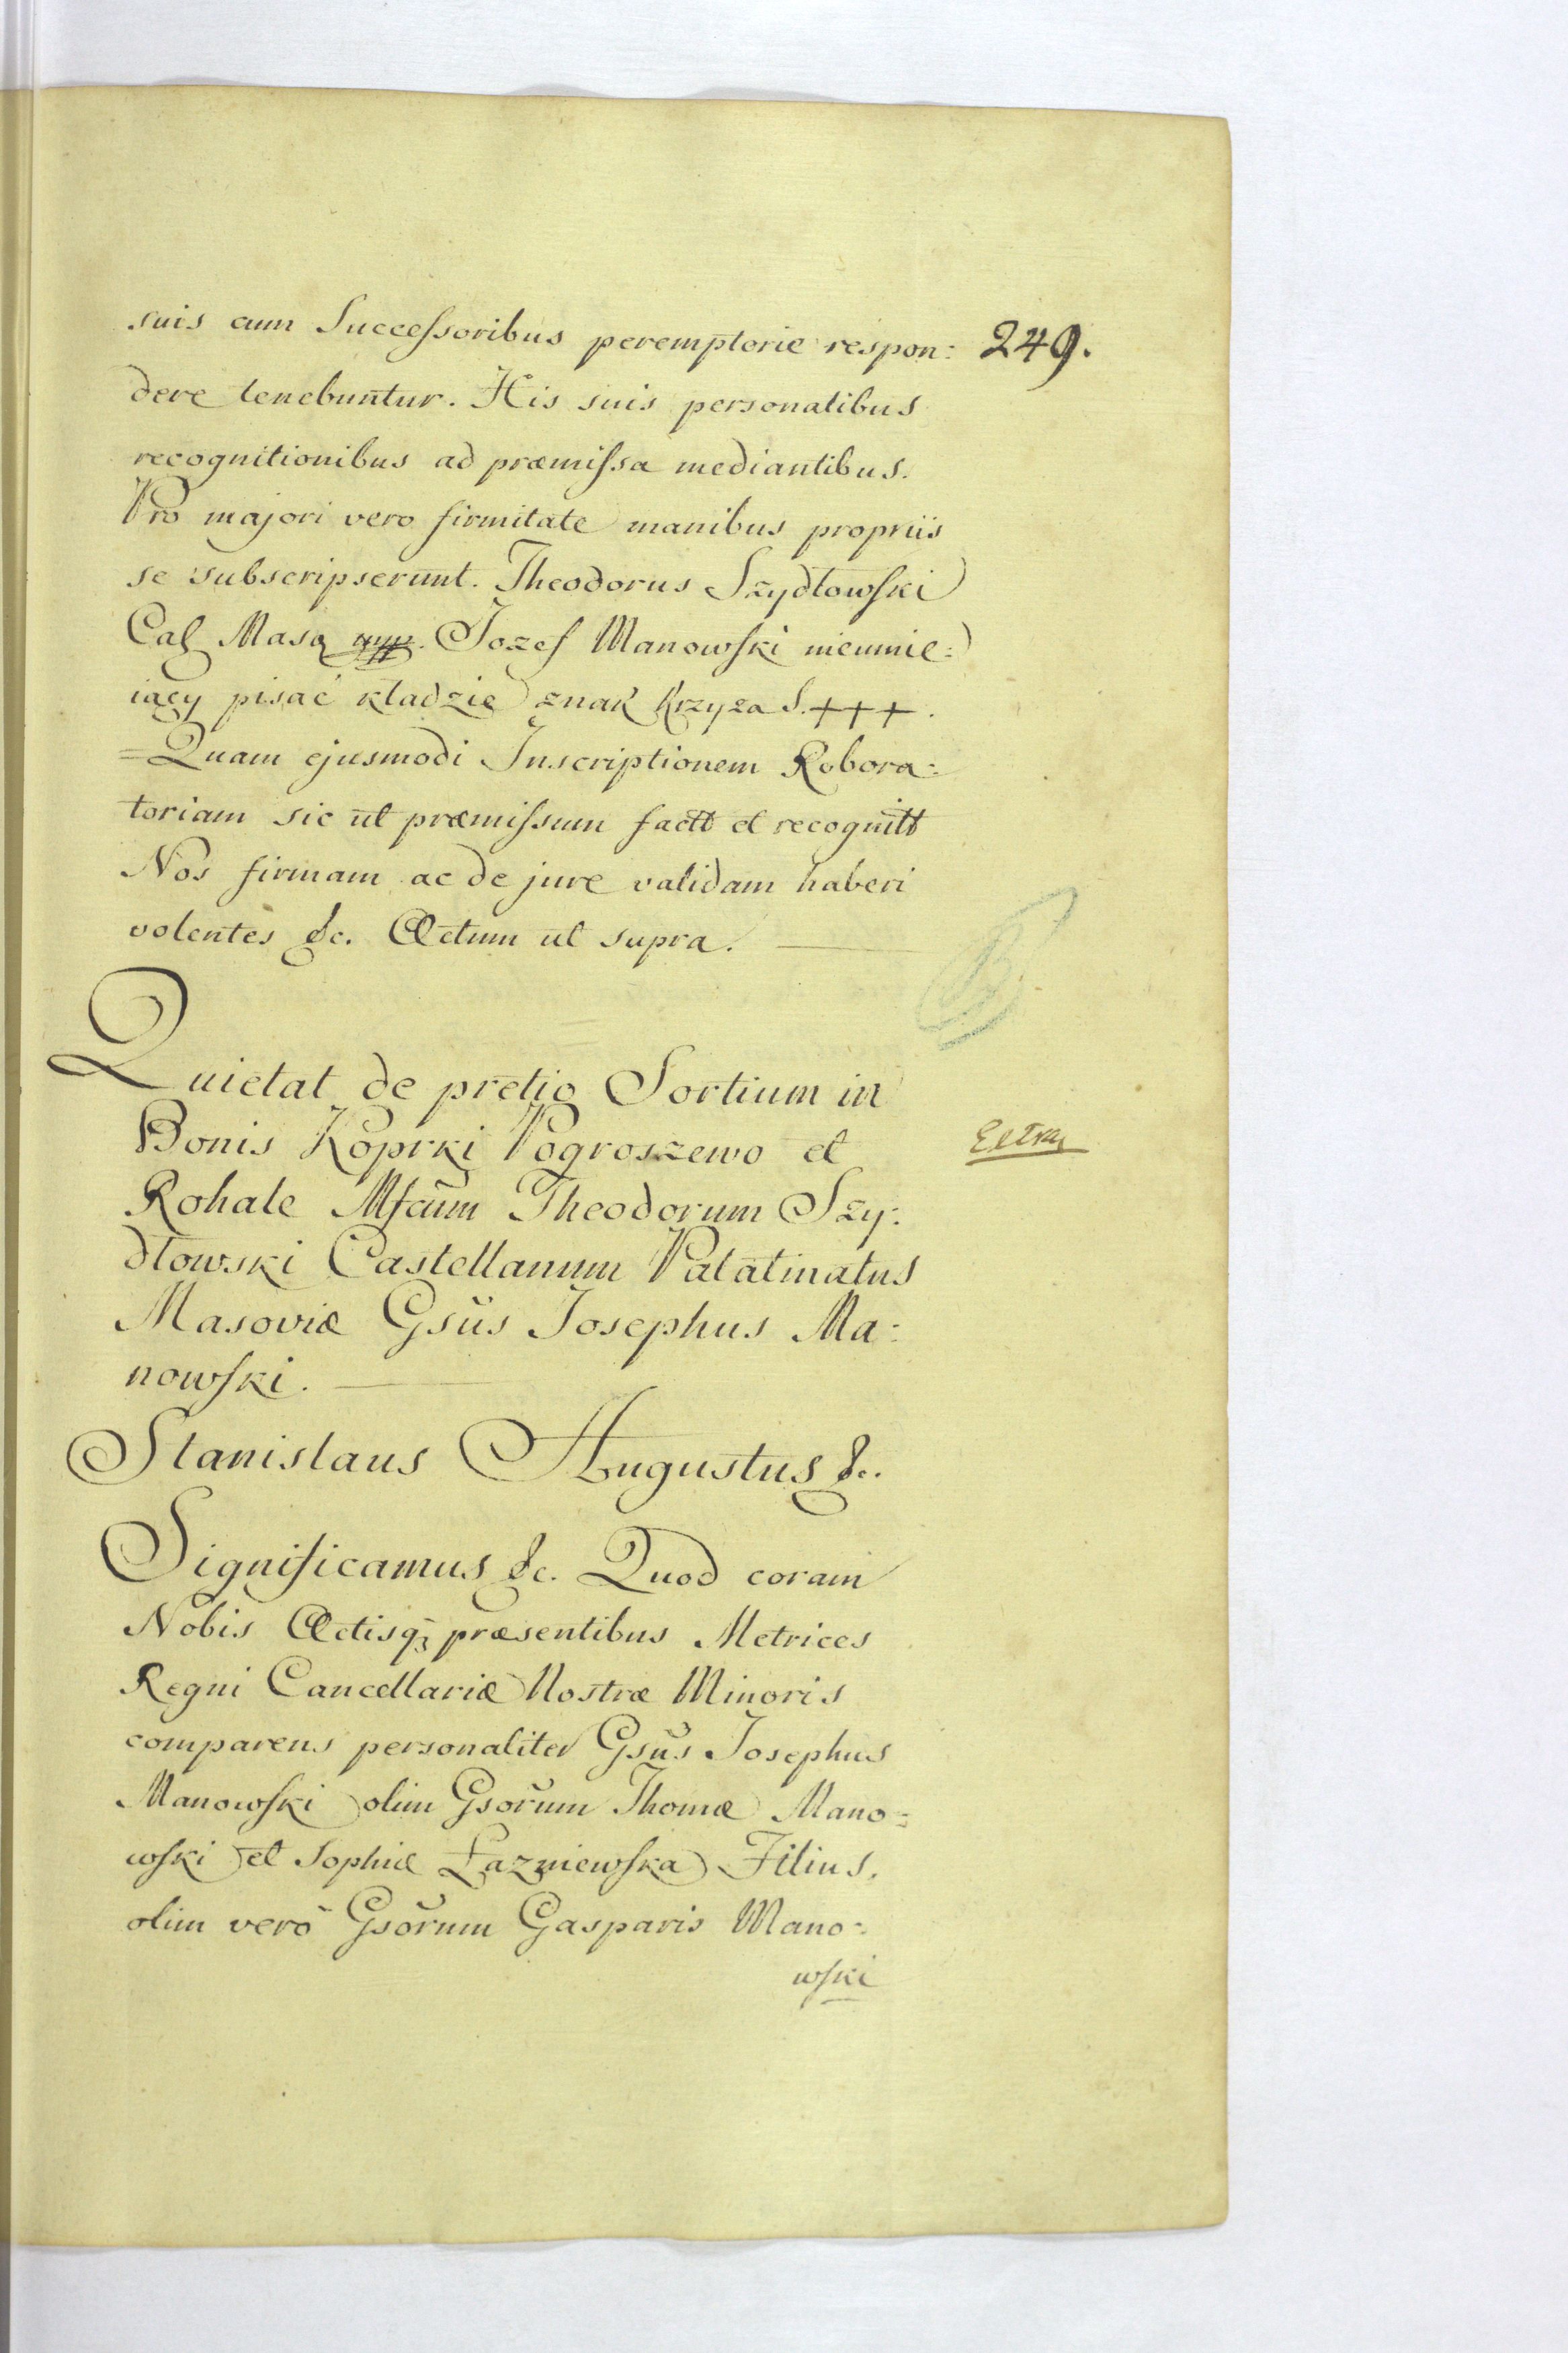 suis cum Successoribus peremptorie respon: 249.
dere tenebuntur. His suis personalibus
recognitionibus ad præmissa mediantibus.
Pro majori vero firmitate manibus propriis
se subscripserunt. Theodorus Szydłowski
Józef Manowski nieumie:
iący pisać kładzie znak Krzyża S. +++.
=Quam ejusmodi Inscriptionem Robora:
toriam sic ut præmissum factt et recognitt
Nos firmam ac de jure validam haberi
volentes &c. Actum ut supra.
Quietat de pretio Sortium in
Bonis Koprki Pogroszewo et
Rohale Mfcum Theodorum Szy:
dłowski Castellanum Palatinatus
Masoviæ Gsus Josephus Ma:
nowski.
Stanislaus Augustus &c.
Significamus &c. Quod coram
Nobis Actisq; præsentibus Metrices
Regni Cancellariæ Nostræ Minoris
comparens personaliter Gsus Josephus
Manowski olim Gsorum Thomæ Mano:
wski et Sophiæ Łazniewska Filius,
olim vero Gsorum Gasparis Mano:
wski